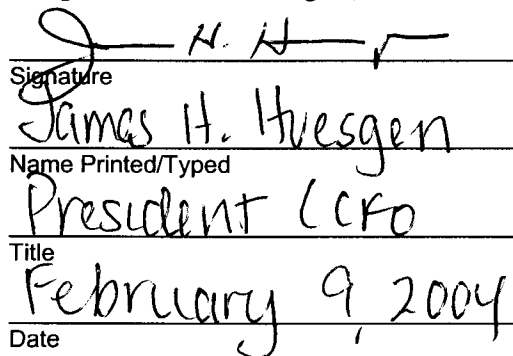 Signature
James H. Huesgen
Name Printed/Typed
President / CFO
Title
February 9, 2004
Date